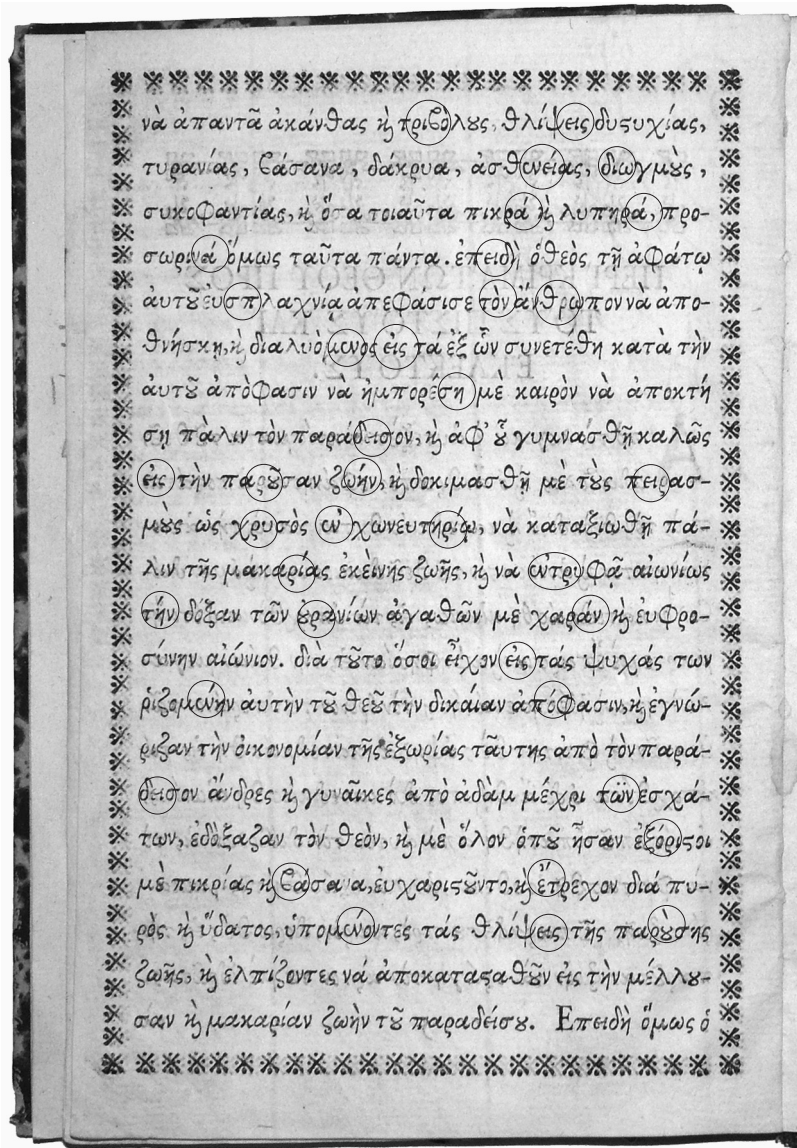 νὰ ἀπαντᾶ ἀκάνθας ϗ̀ τριβόλȣς, θλίψεις δυςυχίας,
τυρανίας, βάσανα, δάκρυα, ἀσθενείας, διωγμȣ̀ς,
συκοφαντίας, ϗ̀ ὅσα τοιαῦτα πικρά ϗ̀ λυπηρά, προ-
σωρινά ὅμως ταῦτα πάντα. ἐπειδὴ ὁθεὸς τῇ ἀφάτῳ
ἀυτȣ͂ ἐυσπλαχνίᾳ ἀπεφάσισε τὸν ἄνθρωπον νὰ ἀπο-
θνήσκῃ, ϗ̀ διαλυόμενος εἰς τά ἐξ ὧν συνετέθη κατὰ τὴν
ἀυτȣ͂ ἀπὸφασιν νὰ ἠμπορέσῃ μὲ καιρὸν νὰ ἀποκτή
σῃ πὰλιν τὸν παράδεισον, ϗ̀ ἀφ' ȣ̔͂ γυμνασθῇ καλῶς
εἰς τὴν παρȣ͂σαν ζωήν, ϗ̀ δοκιμασθῇ μὲ τȣ̀ς πειρασ-
μȣ̀ς ὡς χρυσὸς ἐν χωνευτηρίῳ, νὰ καταξιωθῇ πά-
λιν τῆς μακαρίας ἐκὲινής ζωῆς, ϗ̀ νὰ ἐντρυφᾷ αἰωνίως
τὴν δόξαν τῶν ȣ̓ρανίων ἀγαθῶν μὲ χαράν ϗ̀ ἐυφρο-
σύνην αἰώνιον. διὰ τȣ͂το ὅσοι εἶχον εἰς τάς ψυχάς των
ῥιζομένην αὐτὴν τȣ͂ θεȣ͂ τὴν δικαίαν ἀπόφασιν, ϗ̀ ἐγνώ-
ριζαν τὴν ὀικονομίαν τῆς ἐξωρίας τᾶυτης ἀπὸ τὸν παρά-
δεισον ἄνδρες ϗ̀ γυναῖκες ἀπὸ ἀδὰμ μέχρι τῶν ἐσχά-
των, ἐδὸξαζαν τὸν θεὸν, ϗ̀ μὲ ὅλον ὁπȣ͂ ἦσαν ἐξόριςοι
μὲ πικρίας ϗ̀ βάσανα, ἐυχαριςȣ͂ντο, ϗ̀ ἔτρεχον διά πυ-
ρὸς ϗ̀ ὕδατος, ὑπομένοντες τάς θλίψεις τῆς παρȣ́σης
ζωῆς, ϗ̀ ἐλπίζοντες νά ἀποκαταςαθȣ͂ν εἰς τὴν μέλλȣ-
σαν ϗ̀ μακαρίαν ζωὴν τȣ͂ παραδείσȣ. Ἐπειδὴ ὅμως ὁ